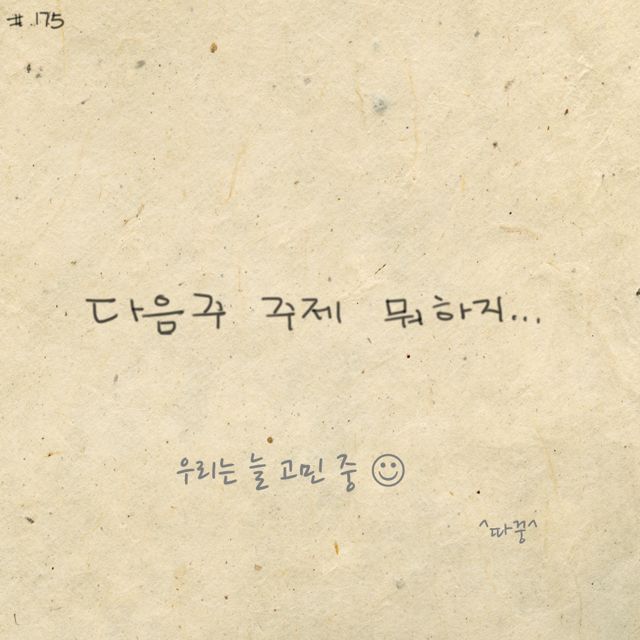 #.175
다음주 주제 뭐하지...
우리는 늘 고민 중 ☺
^따꿍^